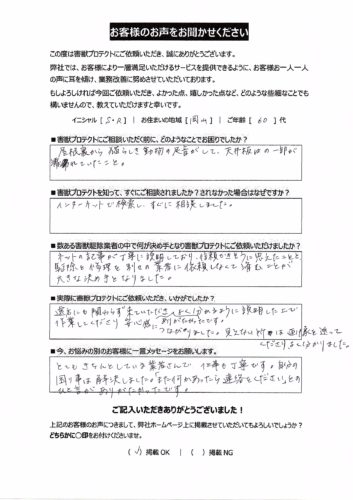 お客様のお声をお聞かせください
この度は害獣プロテクトにご依頼いただき、誠にありがとうございます。
弊社では、お客様により一層満足いただけるサービスを提供できるように、お客様お一人お一人
の声に耳を傾け、業務改善に努めさせていただいております。
もしよろしければ今回ご依頼いただき、よかった点、嬉しかった点など、どのような些細なことでも
構いませんので、教えていただけますと幸いです。
イニシャル [ S・R ] お住まいの地域 [ 岡山 ] ご年齢 [ 60 ] 代
■害獣プロテクトにご相談いただく前に、どのようなことでお困りでしたか?
屋根裏から 猫らしき動物の足音がして、天井板の一部が
ていたこと。
■害獣プロテクトを知って、すぐにご相談されましたか?されなかった場合はなぜですか?
インターネットで検索し、すぐに相談しました。
■数ある害獣駆除業者の中で何が決め手となり害獣プロテクトにご依頼いただけましたか?
ネットの記事が丁寧に説明しており、信頼ができそうに思えたことと、
駆除と修理を別々の業者に依頼しなくて済むことが
大きな決め手となりました。
■実際に害獣プロテクトにご依頼いただき、いかがでしたか?
遠方にも関わらず来ていただき、よく分かるように説明した上で
作業してくださり 安心感につながりました。見えない所は画像を通して
ありがたかったです。
くださり、よく分かりました。
■今、お悩みの別のお客様に一言メッセージをお願いします。
とてもきちんとしている業者さんで 仕事も丁寧です。自分の
困り事は解決しました。「また何かあったら連絡をください」との
ひと言がありがたかったです。
ご記入いただきありがとうございました!
上記のお客様のお声につきまして、弊社ホームページ上に掲載させていただいてもよろしいでしょうか?
どちらかに○印をお付けくださいませ。
( ✓ ) 掲載OK | ( ) 掲載NG